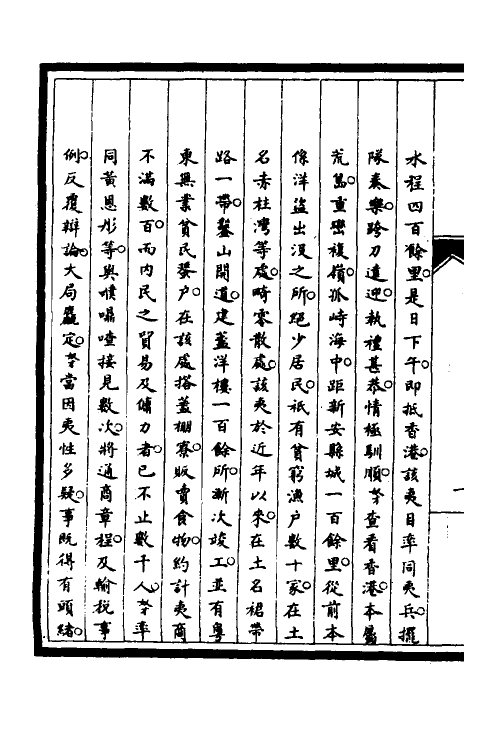 水程四百餘里。是日下午。即抵香港。該夷目率同夷兵。擺
隊奏樂。跨刀遠迎。執禮甚恭。情極馴順。奴才查看香港。本屬
荒島。重巒複嶺。孤峙海中。距新安縣城一百餘里。從前本
係洋盜出沒之所。絕少居民。祇有貧窮漁户數十家。在土
名赤柱灣等處。畸零散處。該夷於近年以來。在土名裙帶
路一帶。鑿山開道。建蓋洋樓一百餘所。漸次竣工。並有粵
東無業貧民蜑户。在該處搭蓋棚寮。販賣食物。約計夷商
不滿數百。而内民之貿易及傭力者。已不止數千人。奴才率
同黃恩彤等。與㗆嘣喳接見數次。將通商章程。及輸稅事
例。反覆辯論。大局麤定。奴才當因夷性多疑。事既得有頭緒。